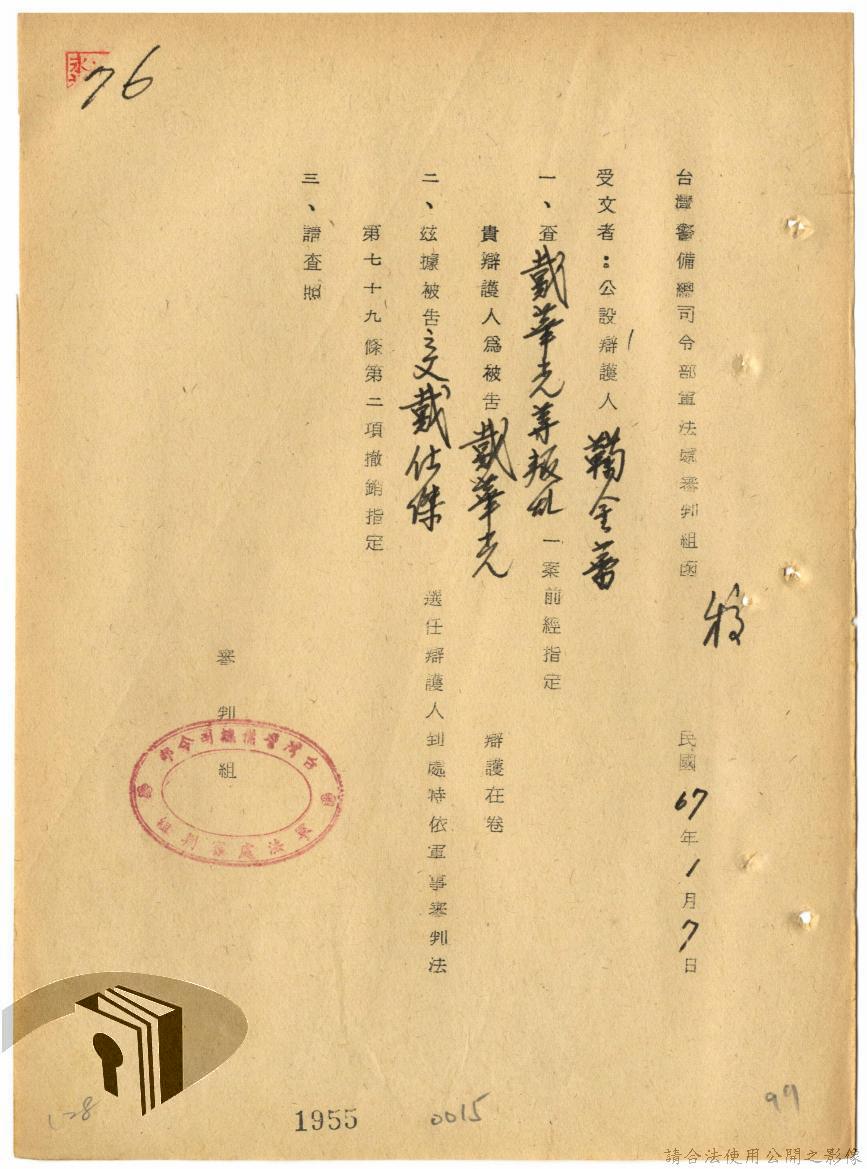 76
台灣警備總司令部軍法處審判組函
稿
民國67年1月7日
受文者：公設辯護人 鞠金蕾
一、查戴華光等叛乱一案前經指定
貴辯護人爲被告戴華光 辯護在卷
二、玆據被告之父戴仕傑 選任辯護人到處特依軍事審判法
第七十九條第二項撤銷指定
三、請查照
審判組
台灣警備總司令部
軍法處審判組
128
1955
0015
99
請合法使用公開之影像